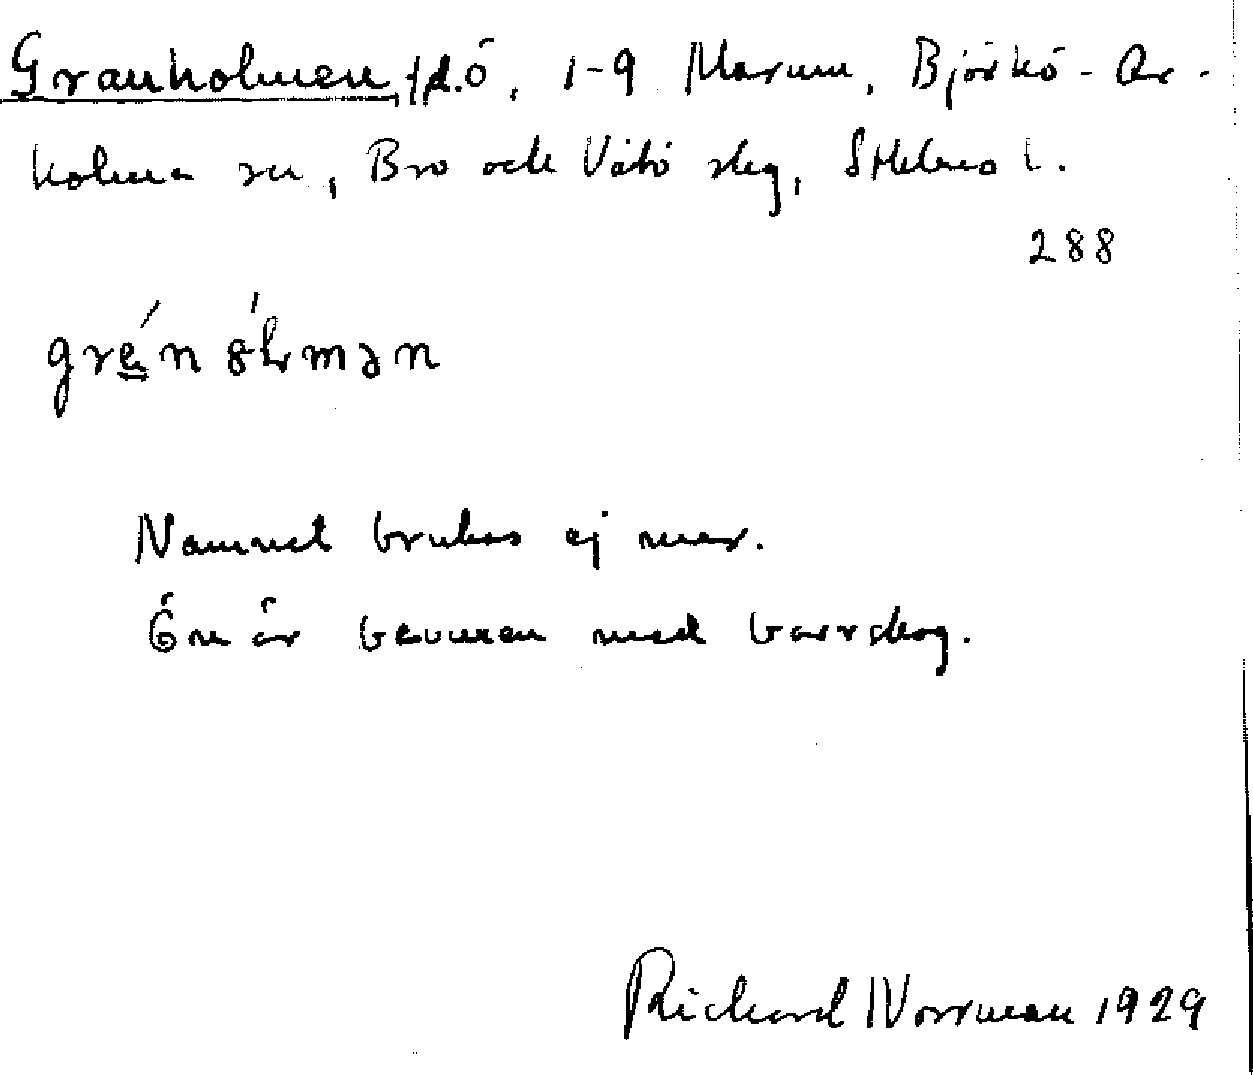 Granholmen, f.d. ö, 1-9 Marum, Björkö-Ar-
holma sn, Bro och Vätö skg, Sthlms l.
288
Namnet brukas ej mer.
Ön är bevuxen med barrskog.
Richard Norrman 1929